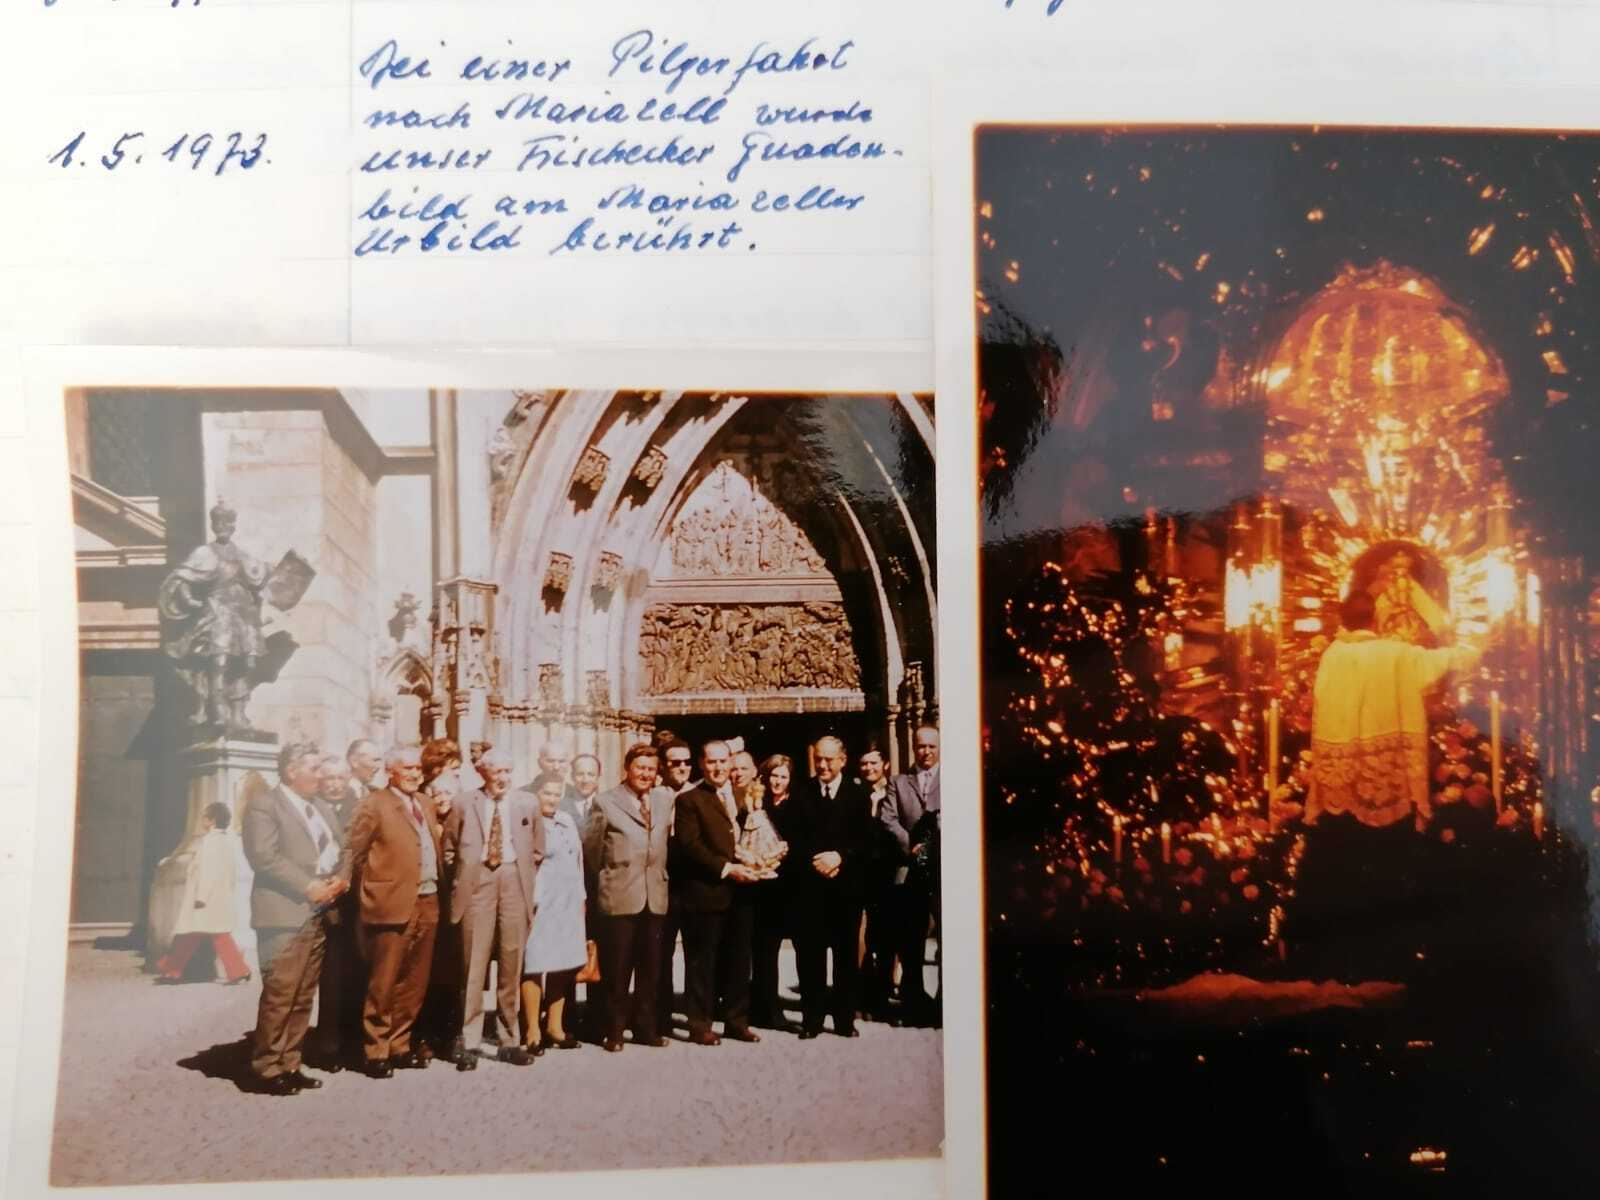 Bei einer Pilgerfahrt
nach Mariazell wurde
1.5.1973.
unser Frischecker Gnaden-
bild am Mariazeller
Urbild berührt.